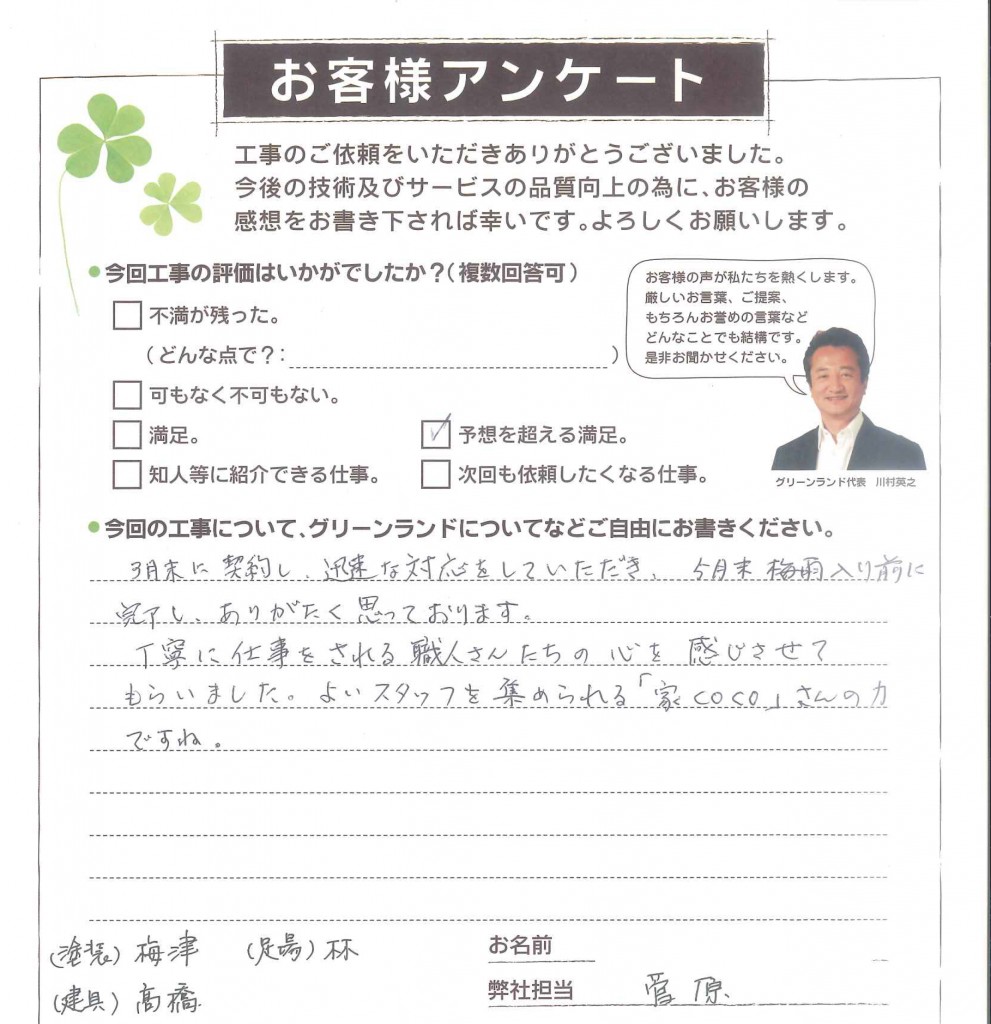 お客様アンケート
工事のご依頼をいただきありがとうございました。
今後の技術及びサービスの品質向上の為に、お客様の
感想をお書き下されば幸いです。よろしくお願いします。
●今回工事の評価はいかがでしたか？(複数回答可)
お客様の声が私たちを熱くします。
厳しいお言葉、ご提案、
もちろんお誉めの言葉など
どんなことでも結構です。
是非お聞かせください。
不満が残った。
(どんな点で？: )
可もなく不可もない。
満足。 ✓ 予想を超える満足。
知人等に紹介できる仕事。 次回も依頼したくなる仕事。
グリーンランド代表 川村英之
●今回の工事について、グリーンランドについてなどご自由にお書きください。
3月末に契約し、迅速な対応をしていただき、5月末梅雨入り前に
完了し、ありがたく思っております。
丁寧に仕事をされる職人さんたちの心を感じさせて
もらいました。よいスタッフを集められる「家coco」さんの力
ですね。
(塗装)梅津 (足場)林
(建具)高橋
お名前
弊社担当 菅原